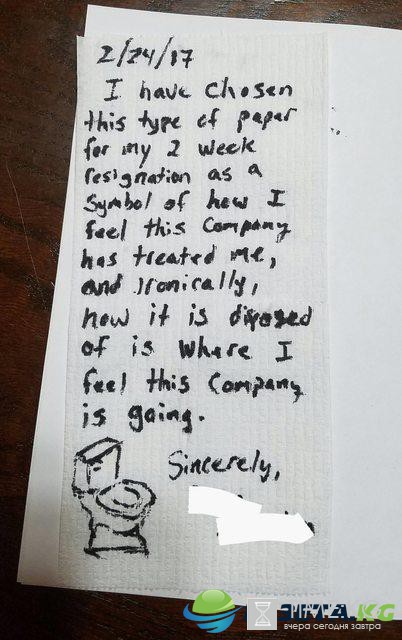 2/24/17
I have chosen
this type of paper
for my 2 week
resignation as a
symbol of how I
feel this company
has treated me,
and ironically,
how it is diposed
of is where I
feel this company
is going.
Sincerely,
вчера сегодня завтра